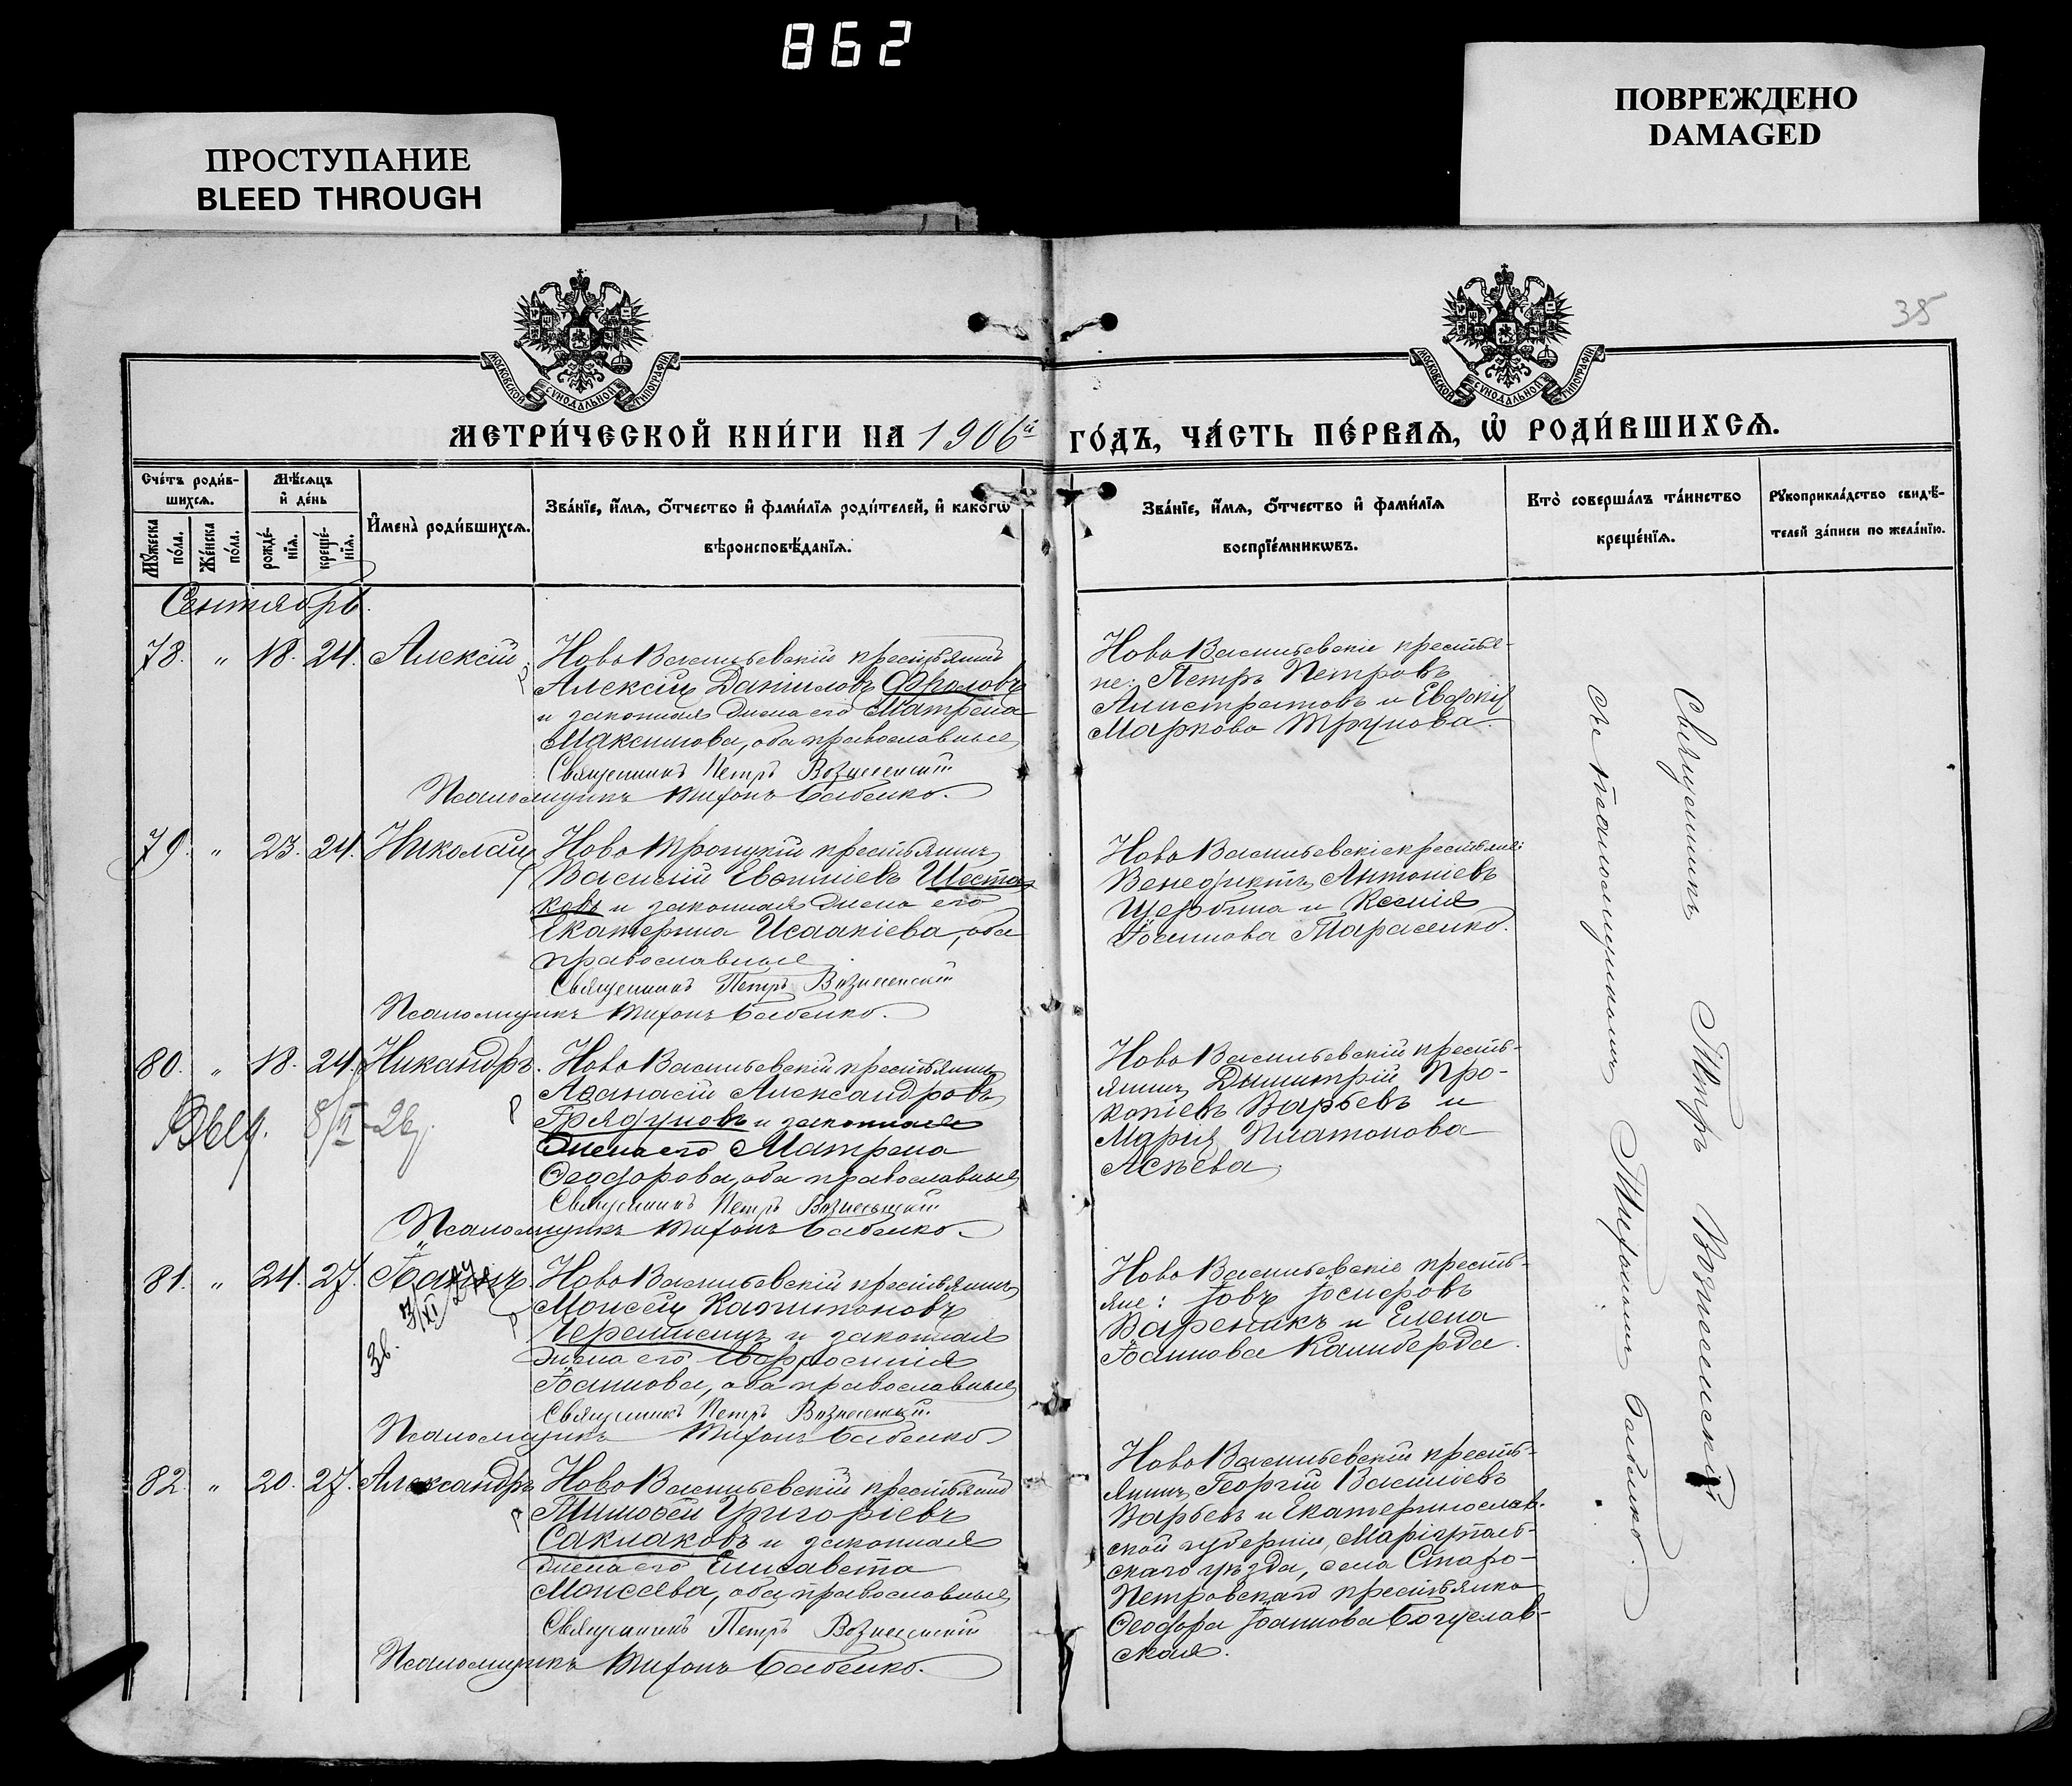 862
ПРОСТУПАНИЕ
BLEED THROUGH
ПОВРЕЖДЕНО
DAMAGED
35
МОСКОВСКОЙ СѴНОДАЛЬНОЙ ТИПОГРАФІИ
МОСКОВСКОЙ СѴНОДАЛЬНОЙ ТИПОГРАФІИ
МЕТРИ́ЧЕСКОЙ КНИ́ГИ НА 1906й ГО́ДЪ, ЧА́СТЬ ПЕ́РВАѦ, Ѡ҆ РОДИ́ВШИХСѦ.
Сче́тъ роди́в-
шихсѧ.
Мѣ́сѧцъ
и҆ де́нь
Мꙋ́жеска
по́ла.
Же́нска
по́ла.
рожде́-
нїѧ.
креще́-
нїѧ.
И҆мена̀ роди́вшихсѧ.
Зва́нїе, и҆́мѧ, ѻ҆́тчество и҆ фами́лїѧ роди́телей, и҆ како́гѡ
вѣроисповѣ́данїѧ.
Зва́нїе, и҆́мѧ, ѻ҆́тчество и҆ фами́лїѧ
воспрїе́мникѡвъ.
Кто̀ соверша́лъ та́инство
креще́нїѧ.
Рꙋкоприкла́дство свидѣ́-
телей за́писи по жела́нїю.
Сентябрь.
78. " 18. 24. Алексій.
Ново Васильевскій крестьянинъ
Алексій Даниловъ Фроловъ
и законная жена его Матрена
Максимова, оба православные
Священникъ Петръ Вознесенскій
Псаломщикъ Тихонъ Бабенко.
Ново Васильевскіе крестья-
не: Петръ Петровъ
Алистратовъ и Евдокія
Маркова Трунова.
79. " 23. 24. Николай
Ново Троицкій крестьянинъ
Василій Евфиміевъ Шеста-
ковъ и законная жена его
Екатерина Исаакіева, оба
православные
Священникъ Петръ Вознесенскій
Псаломщикъ Тихонъ Бабенко.
Ново Васильевскіе крестьяне:
Венедиктъ Антоніевъ
Щербина и Ксенія
Іоаннова Тарасенко.
80. " 18. 24. Никандръ.
Ново Васильевскій крестьянинъ
Аѳанасій Александровъ
Грядуновъ и законная
жена его Матрена
Ѳеодорова, оба православные
Священникъ Петръ Вознесенскій
Псаломщикъ Тихонъ Бабенко.
Выд.
Ново Васильевскій кресть-
янинъ Димитрій Про-
копіевъ Варбевъ и
Марія Платонова
Асѣева.
81. " 24. 27. Іоаннъ.
Ново Васильевскій крестьянинъ
Моисей Калитоновъ
Черемисинъ и законная
жена его Евфросинія
Іоаннова, оба православные
Священникъ Петръ Вознесенскій
Псаломщикъ Тихонъ Бабенко
Ново Васильевскіе кресть-
яне: Іовъ Іосифовъ
Вареникъ и Елена
Іоаннова Калиберда.
82. " 20. 27. Александръ
Ново Васильевскій крестьянинъ
Тимоѳей Григоріевъ
Саклаковъ и законная
жена его Елисавета
Моисеева, оба православные
Священникъ Петръ Вознесенскій
Псаломщикъ Тихонъ Бабенко.
Ново Васильевскій кресть-
янинъ Георгій Василіевъ
Варбевъ и Екатеринослав-
ской губерніи, Маріуполь-
скаго уѣзда, села Старо-
Петровскаго крестьянка
Ѳеодора Іоаннова Богуслав-
ская.
Священникъ Петръ Вознесенскій
съ Псаломщикомъ Тихономъ Бабенко.